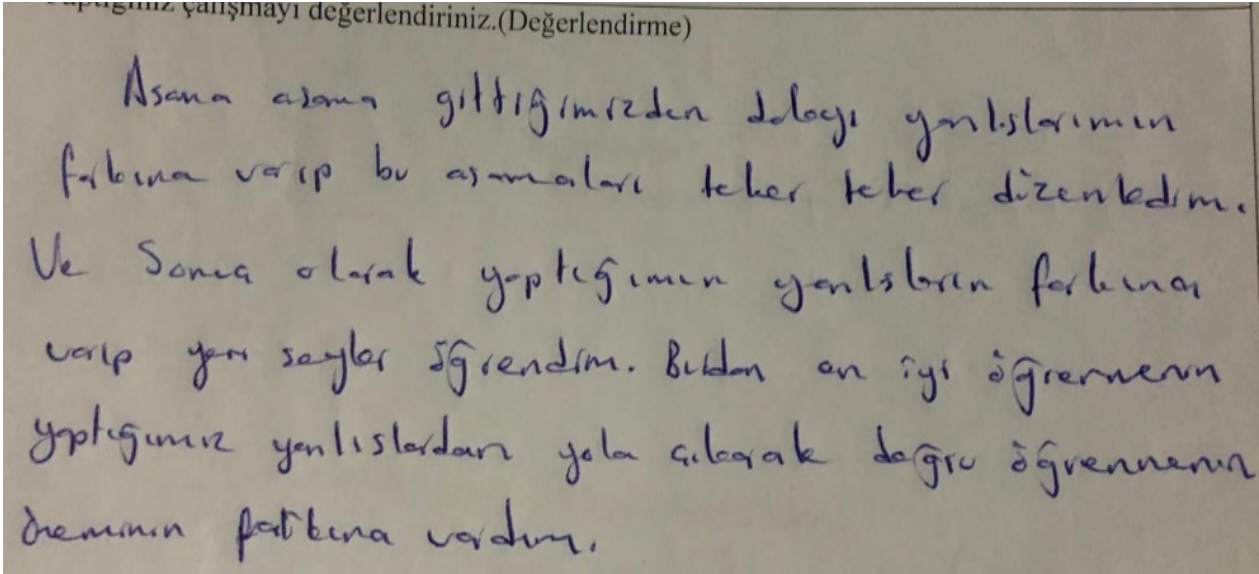 Yaptığınız çalışmayı değerlendiriniz.(Değerlendirme)
Asama asama gittiğimizden dolayı yanlıslarımın
farkına varıp bu aşamaları teker teker düzenledim.
Ve Sonuc olarak yaptığımın yanlısların farkına
varıp yeni seyler öğrendim. en iyi öğrenmenin
yaptığımız yanlıslardan yola çıkarak doğru öğrenmenin
öneminin farkına vardım.